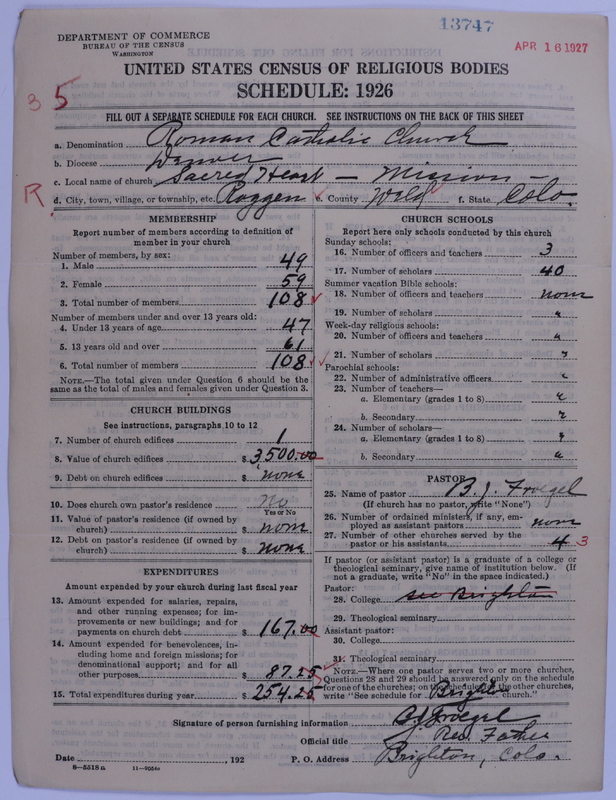 13747
APR 16 1927
DEPARTMENT OF COMMERCE
BUREAU OF THE CENSUS
WASHINGTON
UNITED STATES CENSUS OF RELIGIOUS BODIES
SCHEDULE: 1926
3 5
FILL OUT A SEPARATE SCHEDULE FOR EACH CHURCH. SEE INSTRUCTIONS ON THE BACK OF THIS SHEET
a. Denomination Roman Catholic Church
b. Diocese Denver
c. Local name of church Sacred Heart — Mission —
R
d. City, town, village, or township, etc. Roggen e. County Weld f. State Colo.
MEMBERSHIP
Report number of members according to definition of
member in your church
Number of members, by sex:
1. Male 49
2. Female 59
3. Total number of members 108
Number of members under and over 13 years old:
4. Under 13 years of age 47
5. 13 years old and over 61
6. Total number of members 108
NOTE.—The total given under Question 6 should be the
same as the total of males and females given under Question 3.
CHURCH BUILDINGS
See instructions, paragraphs 10 to 12
7. Number of church edifices 1
8. Value of church edifices $ 3,500.00
9. Debt on church edifices $ none
10. Does church own pastor's residence No
Yes or No
11. Value of pastor's residence (if owned by
church) $ none
12. Debt on pastor's residence (if owned by
church) $ none
EXPENDITURES
Amount expended by your church during last fiscal year
13. Amount expended for salaries, repairs,
and other running expenses; for im-
provements or new buildings; and for
payments on church debt $ 167.00
14. Amount expended for benevolences, in-
cluding home and foreign missions; for
denominational support; and for all
other purposes $ 87.25
15. Total expenditures during year $ 254.25
CHURCH SCHOOLS
Report here only schools conducted by this church
Sunday schools:
16. Number of officers and teachers 3
17. Number of scholars 40
Summer vacation Bible schools:
18. Number of officers and teachers none
19. Number of scholars "
Week-day religious schools:
20. Number of officers and teachers "
21. Number of scholars "
Parochial schools:
22. Number of administrative officers "
23. Number of teachers—
a. Elementary (grades 1 to 8) "
b. Secondary "
24. Number of scholars—
a. Elementary (grades 1 to 8) "
b. Secondary "
PASTOR
25. Name of pastor B. J. Froegel
(If church has no pastor, write "None")
26. Number of ordained ministers, if any, em-
ployed as assistant pastors none
27. Number of other churches served by the
pastor or his assistants 4 3
If pastor (or assistant pastor) is a graduate of a college or
theological seminary, give name of institution below. (If
not a graduate, write "No" in the space indicated.)
Pastor:
28. College see Brighton
29. Theological seminary
Assistant pastor:
30. College
31. Theological seminary
NOTE.—Where one pastor serves two or more churches,
Questions 28 and 29 should be answered only on the schedule
for one of the churches; on the schedules of the other churches,
write "See schedule for Brighton church."
Signature of person furnishing information B J Froegel
Official title Rev. Father
Date , 192 P. O. Address Brighton, Colo.
8—5518 a 11—9554